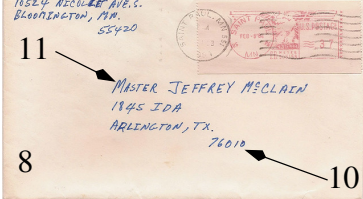 10524 NICOLLET AVE. S.
BLOOMINGTON, MN.
55420
SAINT PAUL, MN
11
MASTER JEFFREY McCLAIN
1845 IDA
ARLINGTON, TX.
76010
8
10